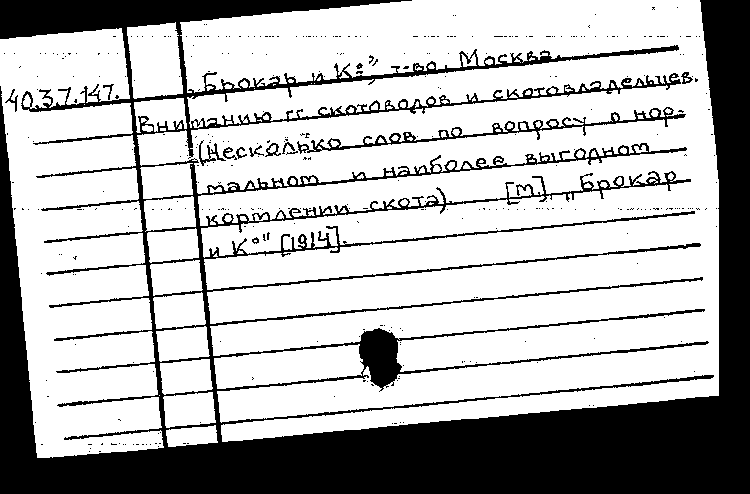 40.3.7.147.
„Брокар и К°", т-во. Москва.
Вниманию гг. скотоводов и скотовладельцев.
(Несколько слов по вопросу о нор-
мальном и наиболее выгодном
кормлении скота). [М.], „Брокар
и К°" [1914].